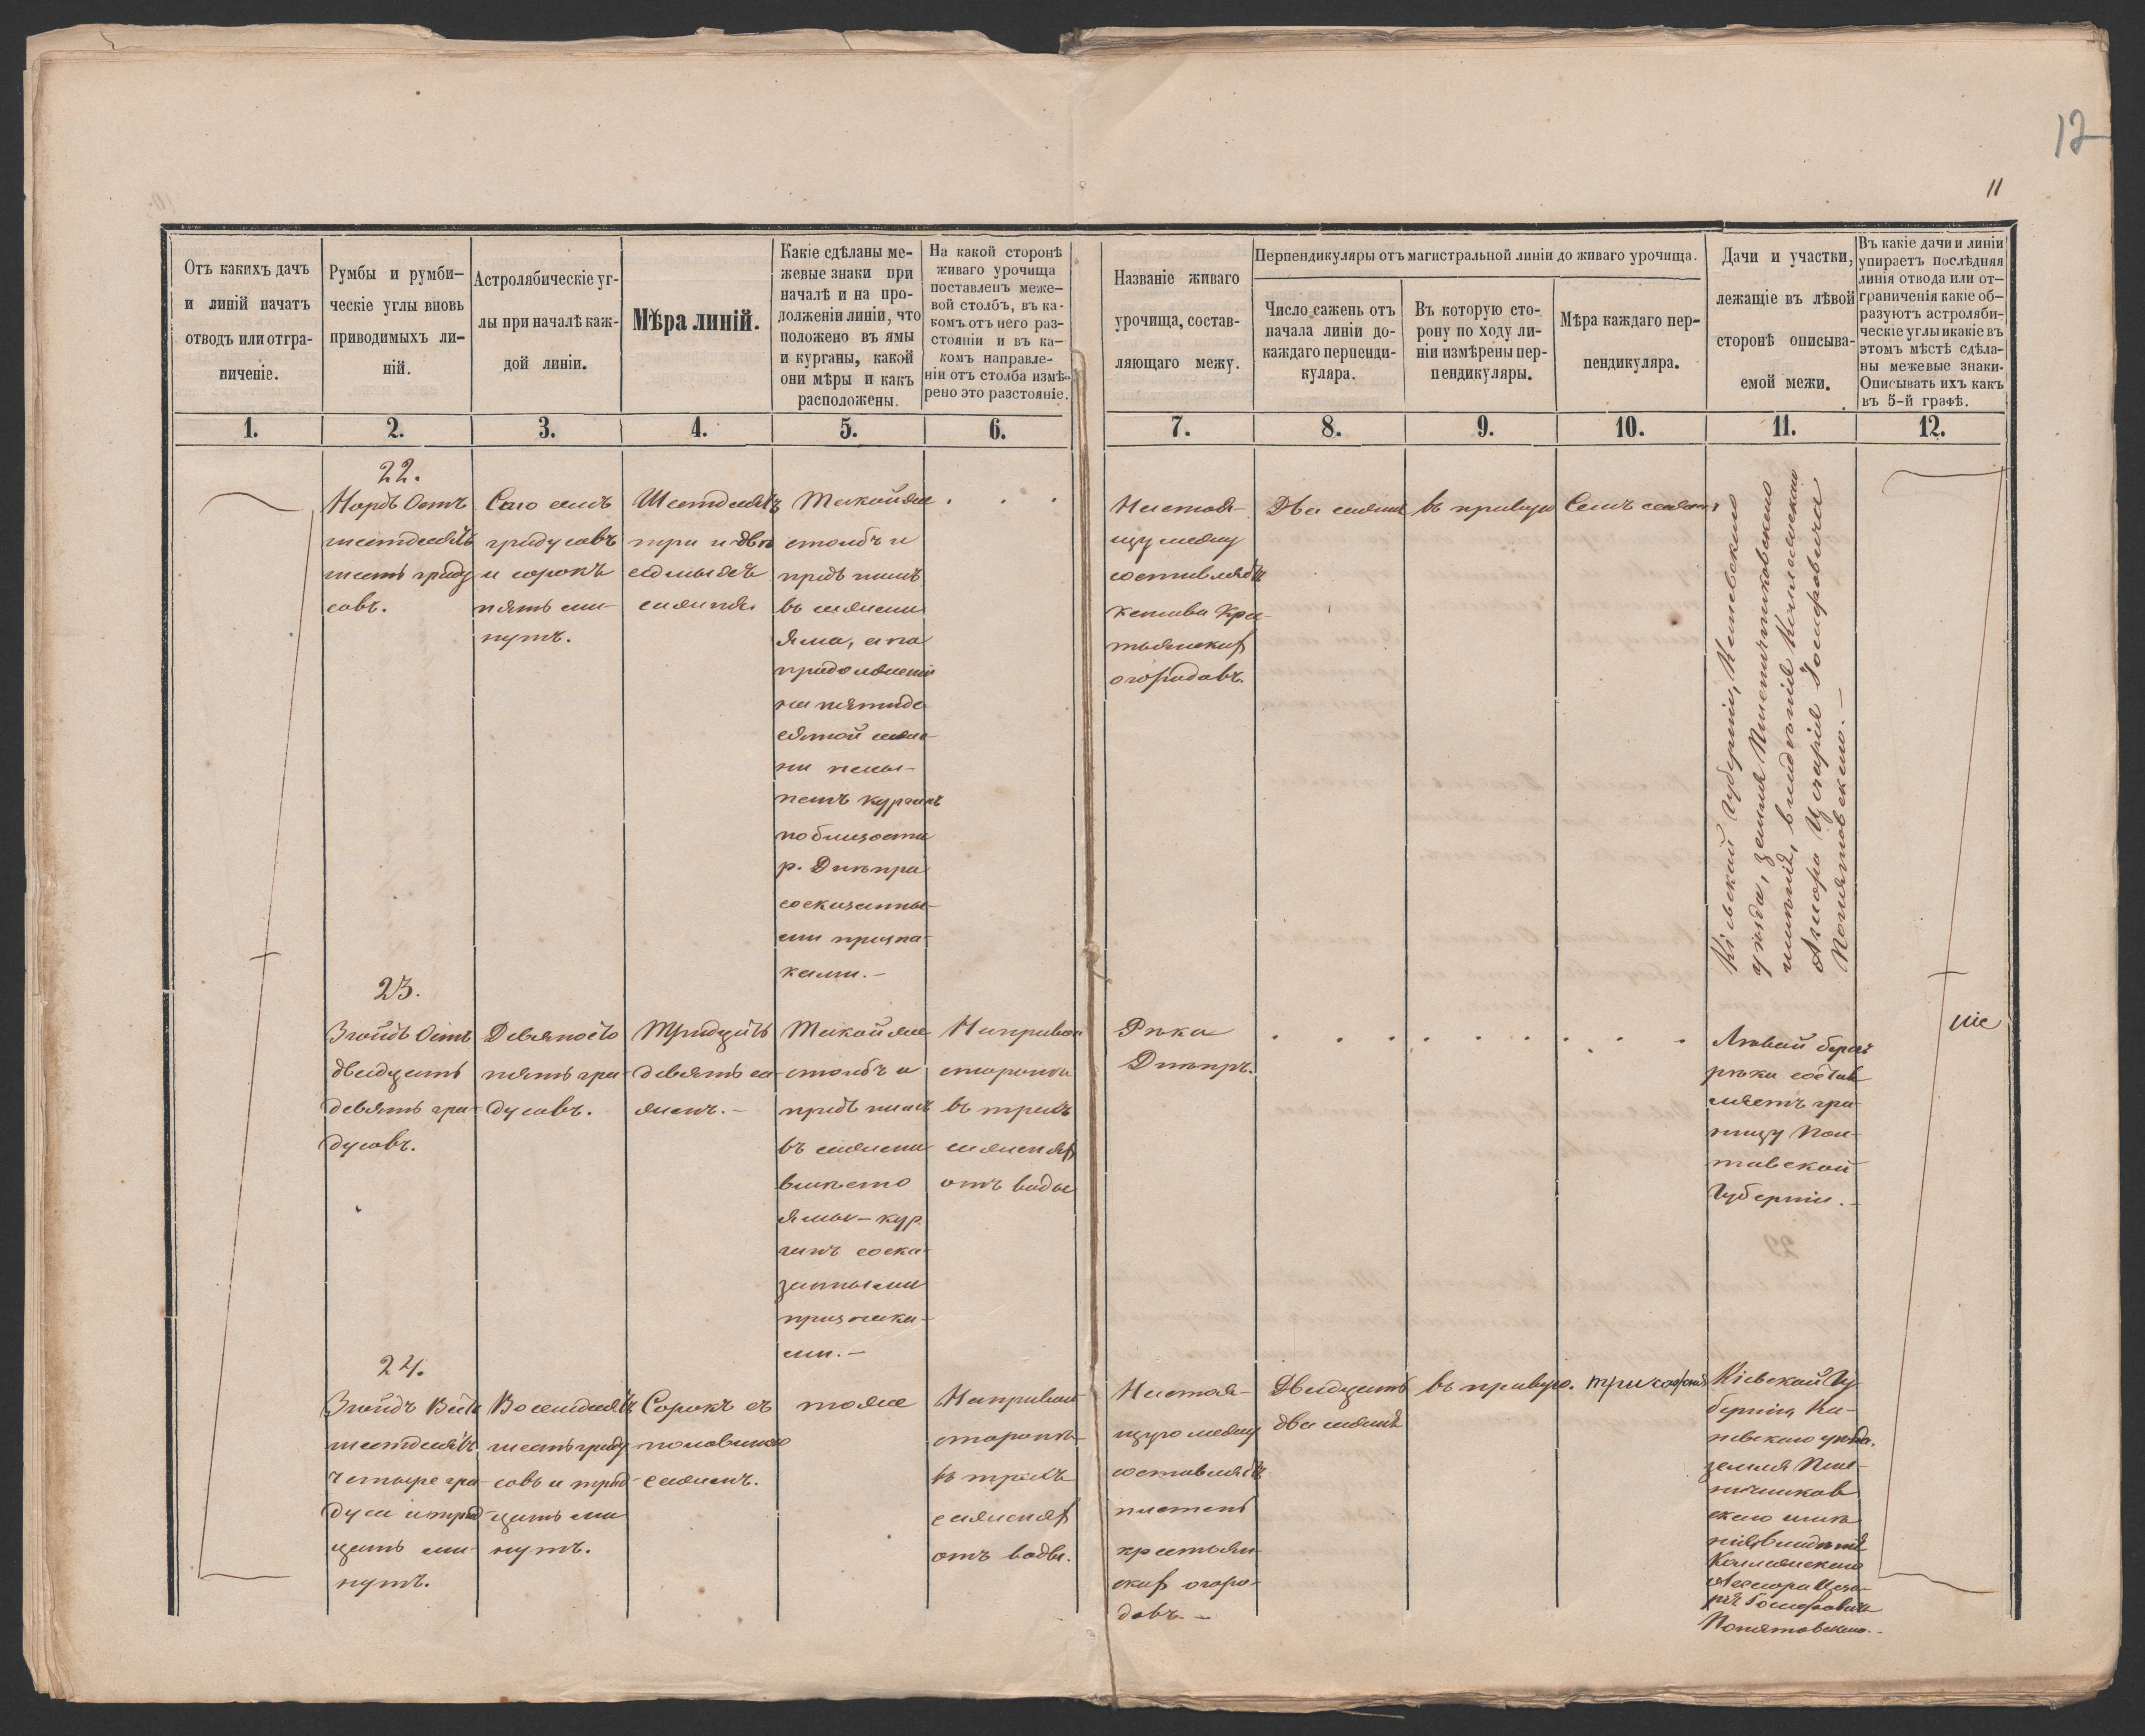 12
11
Отъ какихъ дачъ
и линій начатъ
отводъ или отгра-
ниченіе.
Румбы и румби-
ческіе углы вновь
приводимыхъ ли-
ній.
Астролябическіе уг-
лы при началѣ каж-
дой линіи.
Мѣра линій.
Какіе сдѣланы ме-
жевые знаки при
началѣ и на про-
долженіи линіи, что
положено въ ямы
и курганы, какой
они мѣры и какъ
расположены.
На какой сторонѣ
живаго урочища
поставленъ меже-
вой столбъ, въ ка-
комъ отъ него раз-
стояніи и въ ка-
комъ направле-
ніи отъ столба измѣ-
рено это разстояніе.
Названіе живаго
урочища, состав-
ляющаго межу.
Перпендикуляры отъ магистральной линіи до живаго урочища.
Число сажень отъ
начала линіи до-
каждаго перпенди-
куляра.
Въ которую сто-
рону по ходу ли-
ніи измѣрены пер-
пендикуляры.
Мѣра каждаго пер-
пендикуляра.
Дачи и участки,
лежащіе въ лѣвой
сторонѣ описыва-
емой межи.
Въ какіе дачи и линіи
упираетъ послѣдняя
линія отвода или от-
граниченія какіе об-
разуютъ астроляби-
ческіе углы и какіе въ
этомъ мѣстѣ сдѣла-
ны межевые знаки.
Описывать ихъ какъ
въ 5-й графѣ.
1.
2.
3.
4.
5.
6.
7.
8.
9.
10.
11.
12.
22.
Нордъ Остъ
шестдесятъ
шесть граду
совъ.
Сто семь
градусовъ
и сорокъ
пять ми-
нутъ.
Шестдесятъ
три и двѣ
седмыхъ
сажня
Такой же
столбъ и
предъ нимъ
въ сажени
яма, а на
продолженіи
на пятиде
сятой саже-
ни насы-
панъ курганъ
по близости
р. Днѣпра
сосказанны-
ми призна-
ками.-
Настоя-
щу межу
составляетъ
канава Кре-
стьянскихъ
огородовъ.
Два сажня
въ правую
Семь сажень
Кіевской Губерніи, Каневского
уѣзда, земля Пшеничниковского
имѣнія, владѣнія Колежского
Асесора Цезарія Іосифовича
Понятовского.-
23.
Зюйдъ Остъ
двадцать
девять гра-
дусовъ.
Девяносто
пять гра-
дусовъ.
Тридцать
девять са-
женъ.-
Такой же
столбъ и
предъ нимъ
въ сажени
вмѣсто
ямы-кур
ганъ соска-
занными
признака-
ми.-
На правой
сторонѣ
въ трехъ
саженяхъ
отъ воды
Рѣка
Днѣпръ.
Лѣвый берегъ
рѣки состав
ляетъ гра-
ницу Пол-
тавской
Губерніи.-
24.
Зюйдъ Вестъ
шестдесятъ
четыре гра-
дуса и трид
цать ми-
нутъ.
Восемдесятъ
шесть граду
совъ и трид-
цать ми
нутъ.
Сорокъ съ
половиною
сажень.
тоже
На правой
сторонѣ
въ трехъ
саженяхъ
отъ воды.
Настоя-
щую межу
составляетъ
плетень
крестьян-
скихъ огоро-
довъ.-
Двадцать
два сажня
въ правую.
три сажня
Кіевской Гу-
берніи, Ка-
невского уѣзда.
земля Пше-
ничников
ского имѣ
нія владѣнія
Колежского
Асесора Цеза-
рія Іосифовича
Понятовского.-